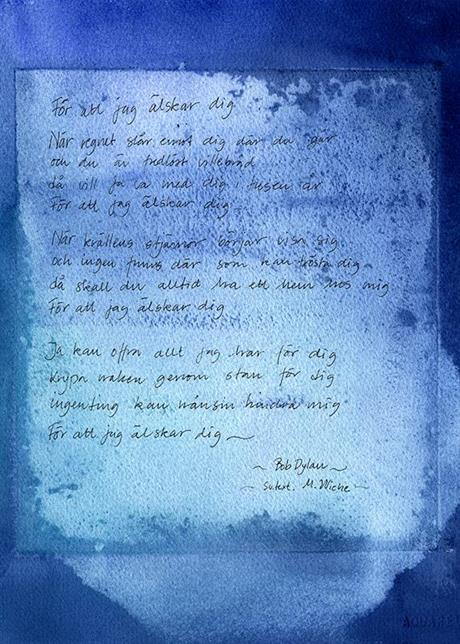 För att jag älskar dig
När regnet slår emot dig där du går
och du är fredlöst villebråd
då vill ja ta med dig i tusen år
För att jag älskar dig
När kvällens stjärnor börjar visa sig
och ingen finns där som kan trösta dig
då skall du alltid ha ett hem hos mig
För att jag älskar dig
Ja kan offra allt jag har för dig
krypa naken genom stan för dig
ingenting kan nånsin hindra mig
För att jag älskar dig
Bob Dylan
Sv. text. M. Wiehe